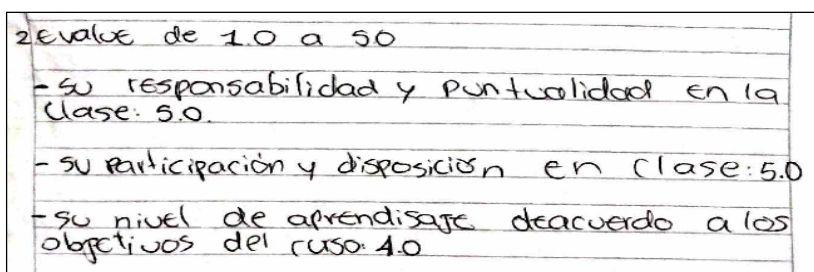 2 Evalue de 1.0 a 50
- su responsabilidad y puntualidad en la
clase: 5.0.
- su participación y disposición en clase: 5.0
- su nivel de aprendisaje deacuerdo a los
objetivos del cuso: 4.0